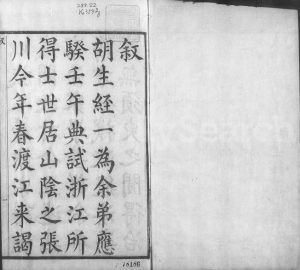 叙
胡生經一為余弟應
騤壬午典試浙江所
得士世居山陰之張
川今年春渡江来謁